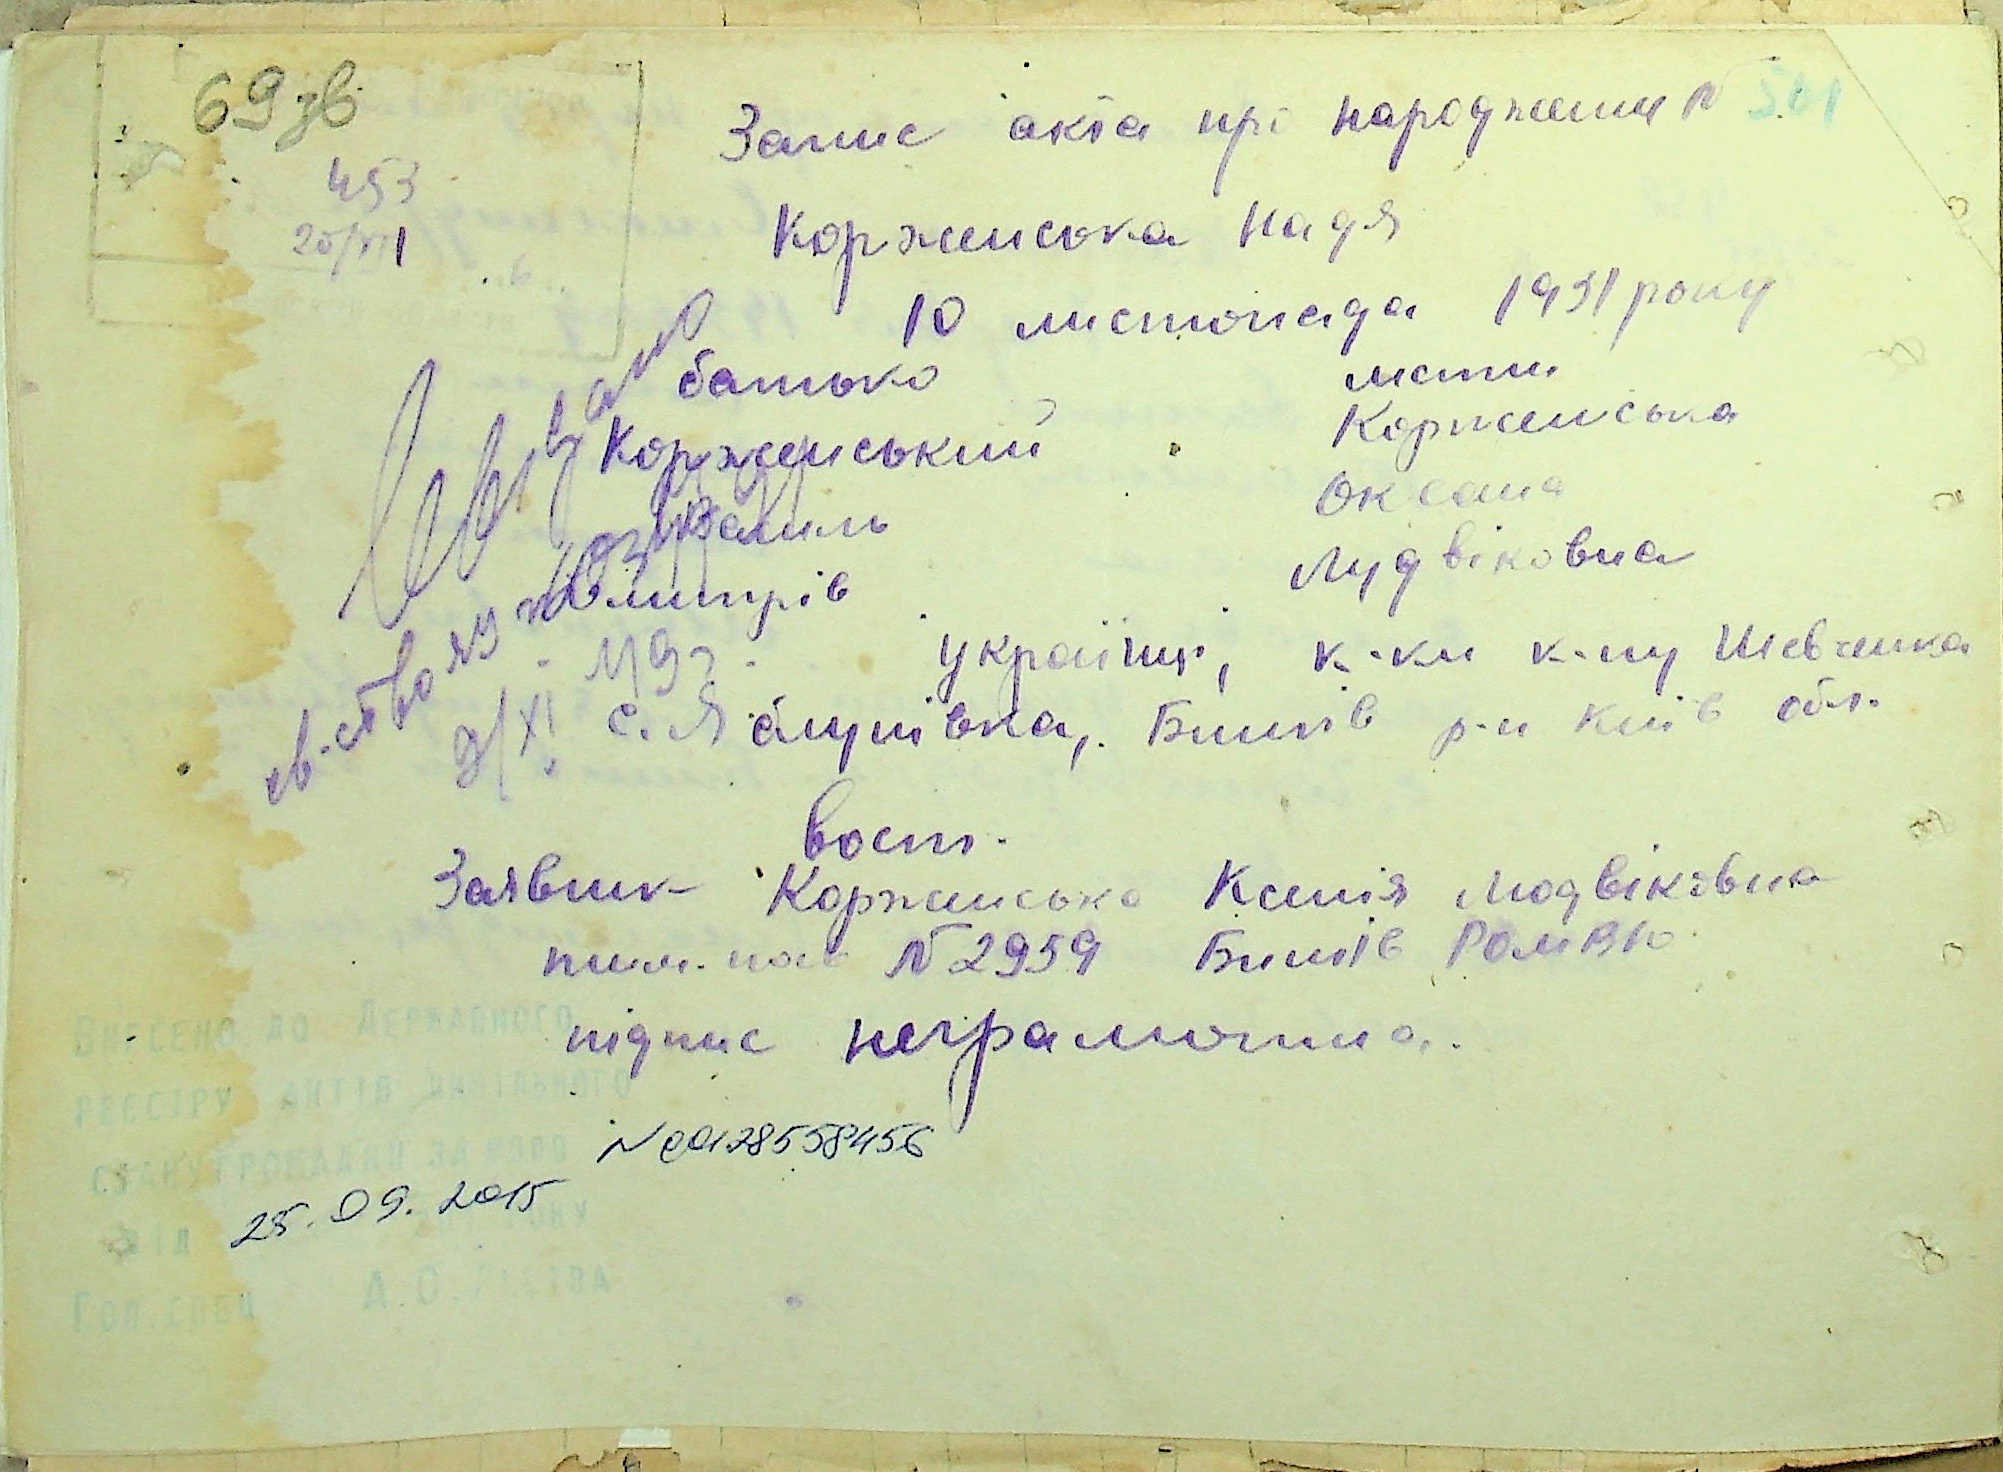 69 зв
453
20/VIII
Запис акта про народження N 501
Корженська Надя
10 листопада 1931 року
батько мати
Корженський Корженська
Василь Оксана
Дмитрів Лудвіковна
українці, к-ки к-пу Шевченка
с. Яблунівка, Бишів р-н Київ обл.
св-ство
Вост.
Заявник Корженська Ксенія Людвіковна
тим. пос N 2959 Бишів РОМВД
підпис неграмотна.
ВНЕСЕНО ДО ДЕРЖАВНОГО
РЕЄСТРУ АКТІВ ЦИВІЛЬНОГО
СТАНУ ГРОМАДЯН ЗА
№ 00128558456
ВІД 25.09.2015
ГОЛ. СПЕЦ А.О.